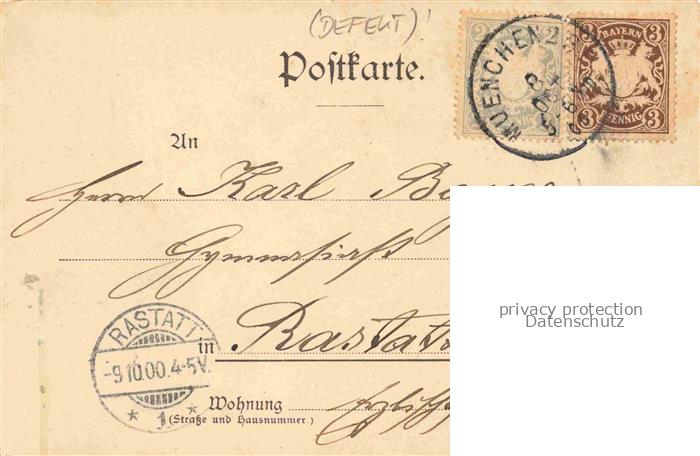 (DEFEKT)!
Postkarte.
2
3 BAYERN 3
3 PFENNIG 3
MUENCHEN 2
An
Herrn Karl
Gymnasiast
RASTATT
-9.10.00.4-5V.
* 1. *
in Rastatt
Wohnung
(Straße und Hausnummer)
privacy protection
Datenschutz